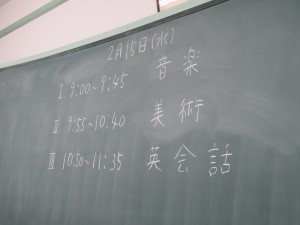 2月15日(水)
Ⅰ 9:00~9:45 音楽
Ⅱ 9:55~10:40 美術
Ⅲ 10:50~11:35 英会話